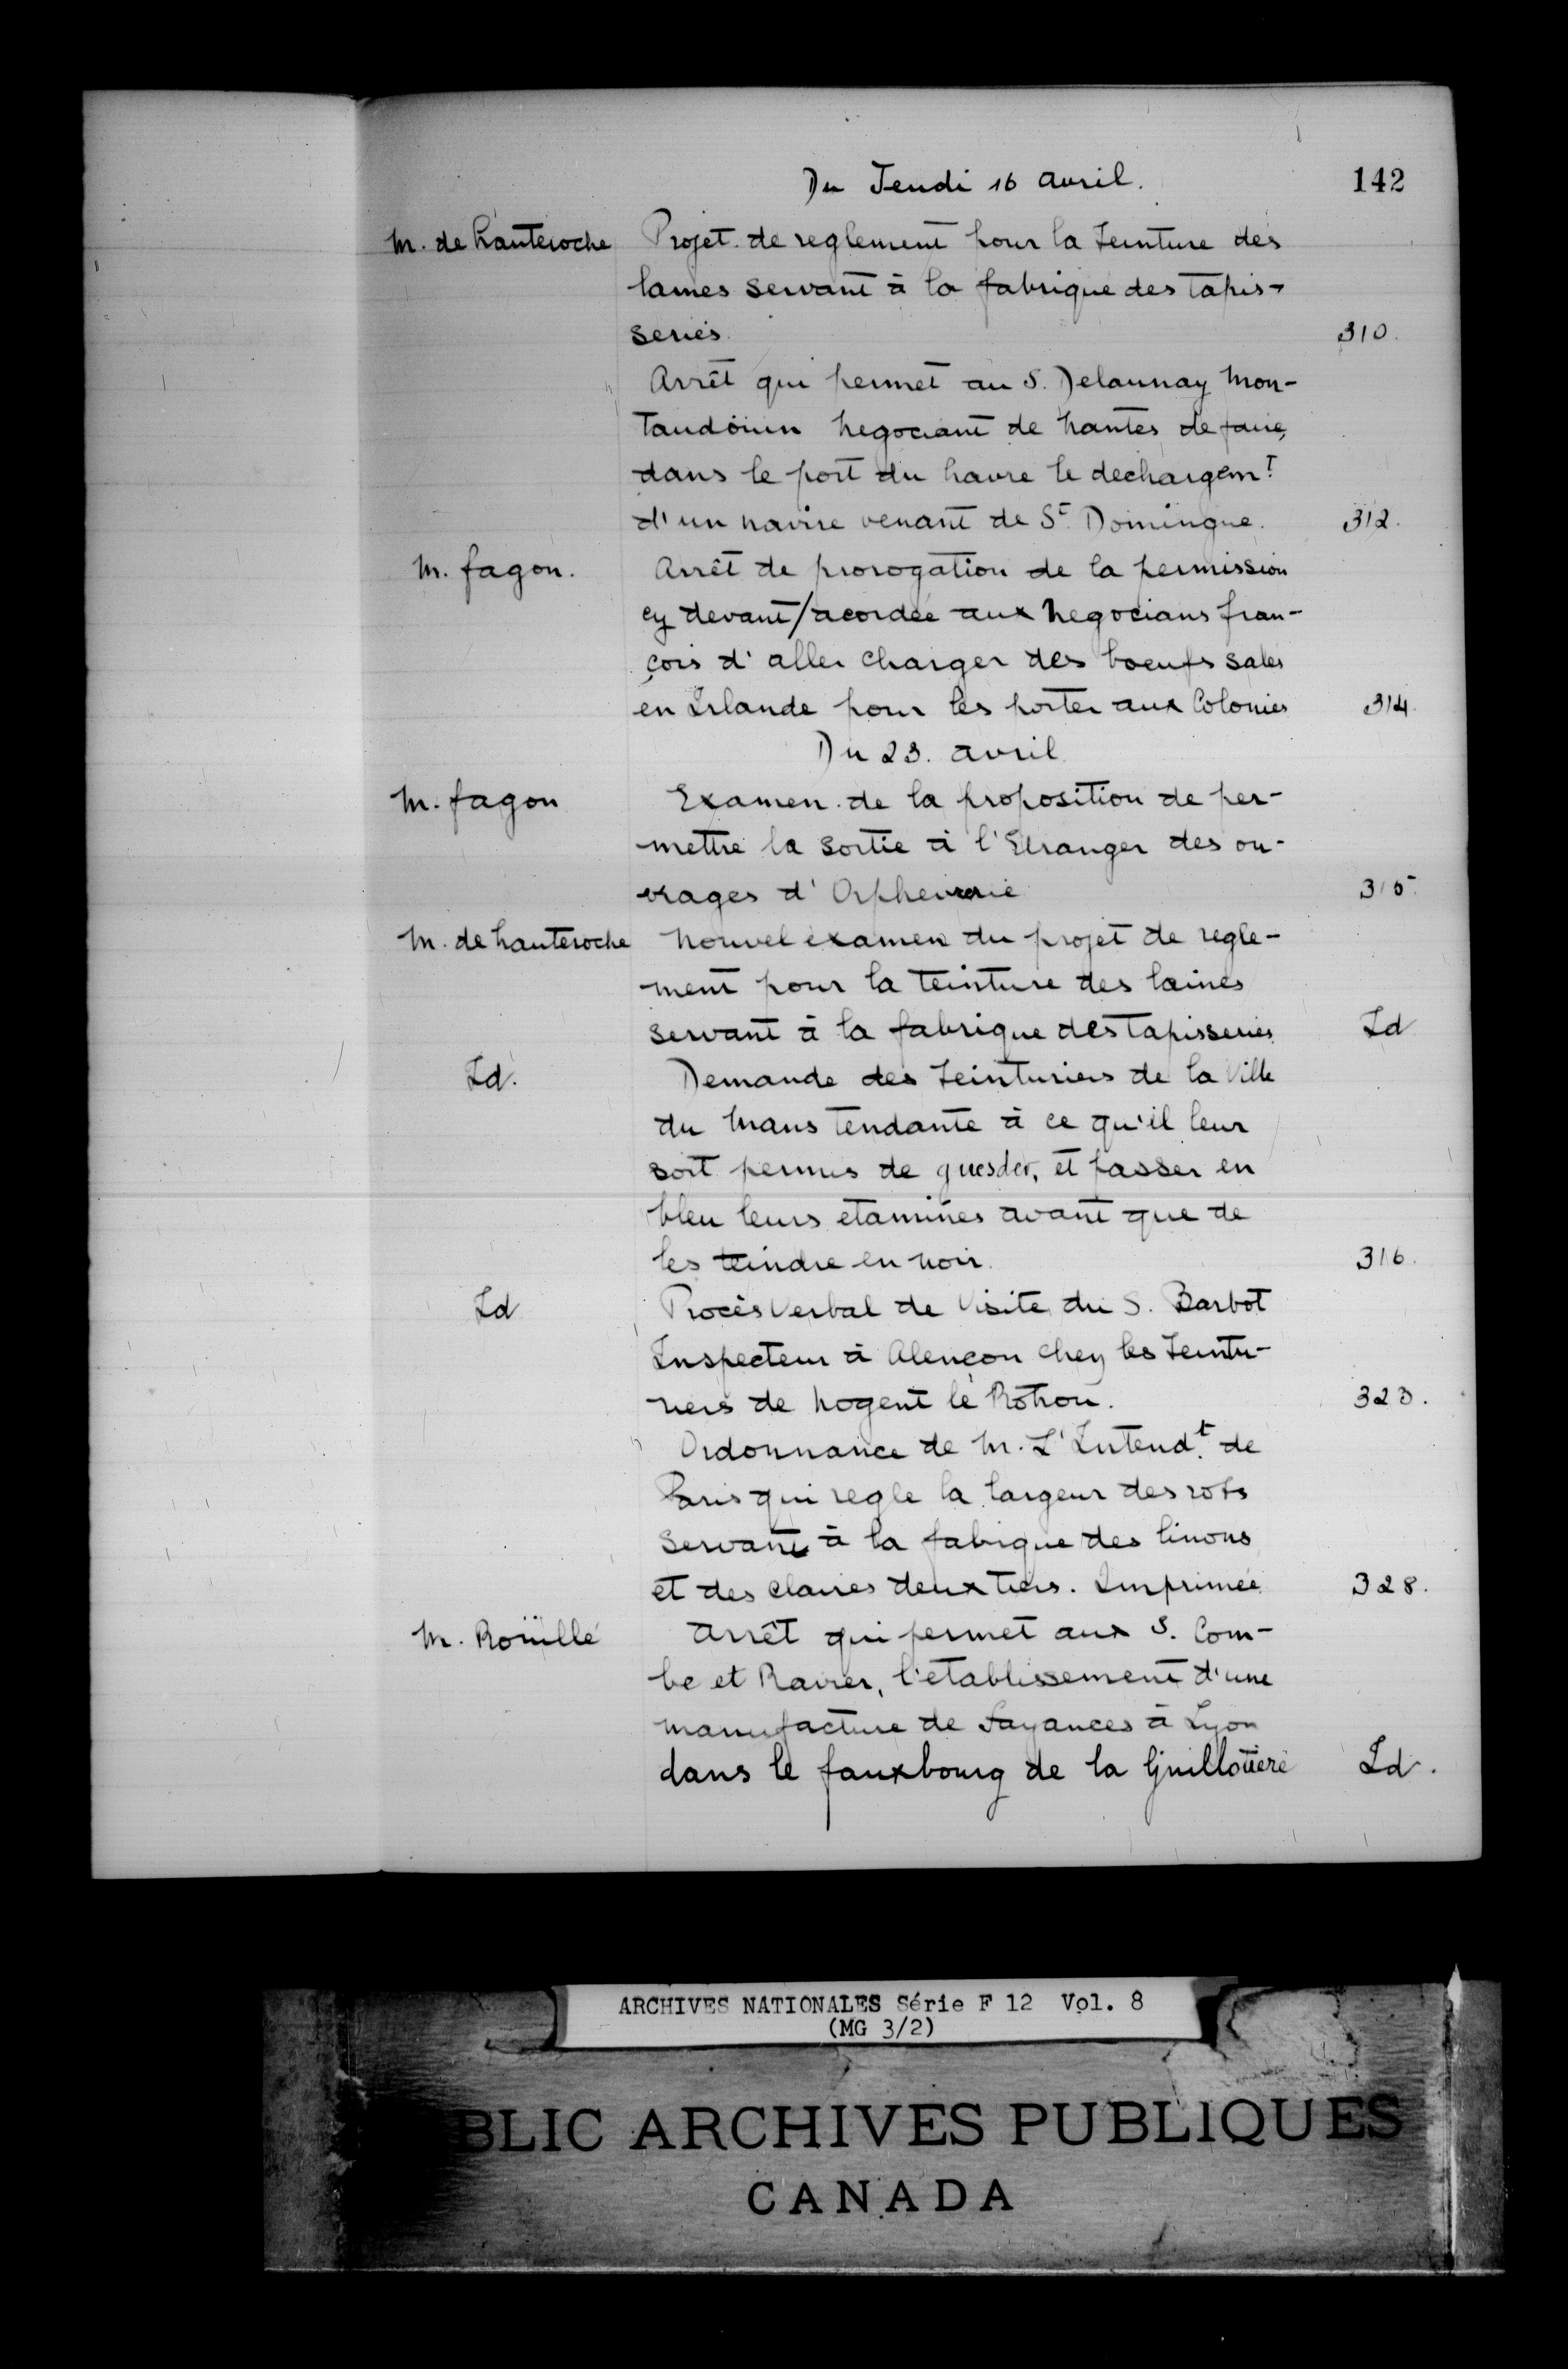 142
Du Jeudi 16 avril.
M. de hauteroche Projet de reglement pour la teinture des
laines servant à la fabrique des tapis-
series 310.
Arrêt qui permet au S. Delaunay Mon-
taudoüin negociant de nantes de faire,
dans le port du havre le dechargem.t
d'un navire venant de St. Domingue. 312.
M. fagon. Arrêt de prorogation de la permission
cy devant/acordée aux negocians fran-
çois d'aller charger des boeufs salés
en Irlande pour les porter aux Colonies 314.
Du 23. avril
M. fagon Examen de la proposition de per-
mettre la sortie à l'Etranger des ou-
vrages d'Orphevrerie 315.
M. de hauteroche nouvel examen du projet de regle-
ment pour la teinture des laines
servant à la fabrique des tapisseries Id
Id. Demande des teinturiers de la Ville
du Mans tendante à ce qu'il leur
soit permis de guesder, et passer en
bleu leurs etamines avant que de
les teindre en noir. 316.
Id Procès Verbal de Visite du S. Barbot
Inspecteur à Alençon chez les teintu-
riers de nogent le Rotrou. 323.
Ordonnance de M. L'Intend.t de
Paris qui regle la largeur des rots
servant à la fabrique des linons
et des claires deux tiers. Imprimée 328.
M. Roüillé Arrêt qui permet aux S. Com-
be et Ravier, l'etablissement d'une
manufacture de fayances à Lyon
dans le fauxbourg de la Guillotiere Id.
ARCHIVES NATIONALES Série F 12 Vol. 8
(MG 3/2)
BLIC ARCHIVES PUBLIQUES
CANADA